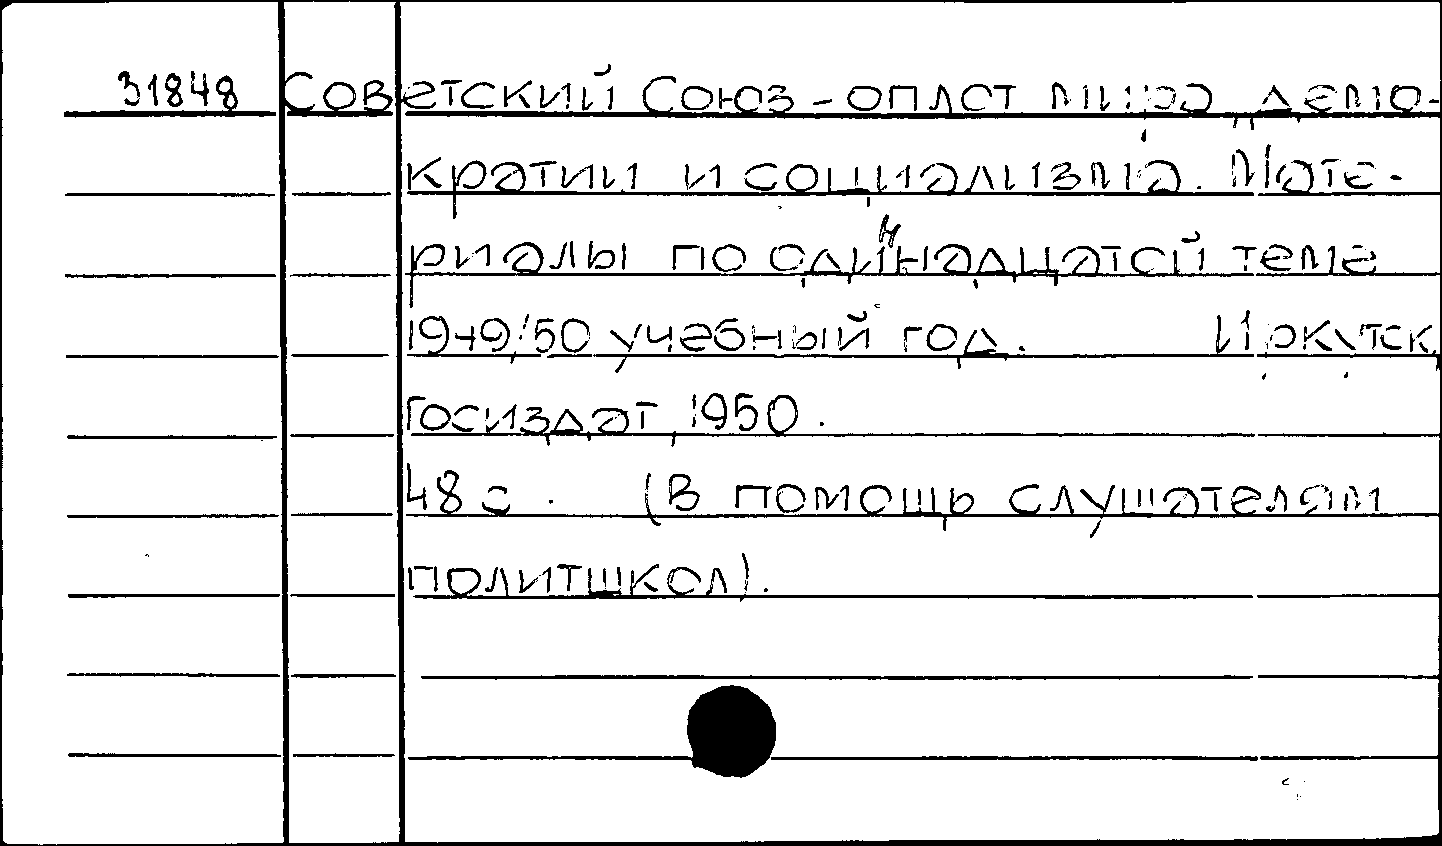 31848 Советский Союз - оплот мира, демо-
кратии и социализма. Мате-
риалы по одиннадцатой теме
1949/50 учебный год. Иркутск,
Госиздат, 1950.
48 с. (В помощь слушателям
политшкол).